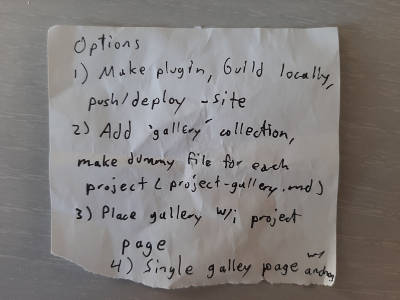 Options
1) Make plugin, Build locally,
push/deploy - site
2) Add 'gallery' collection,
make dummy file for each
project (project-gallery.md)
3) Place gallery w/i project
page
4) Single galley page w/